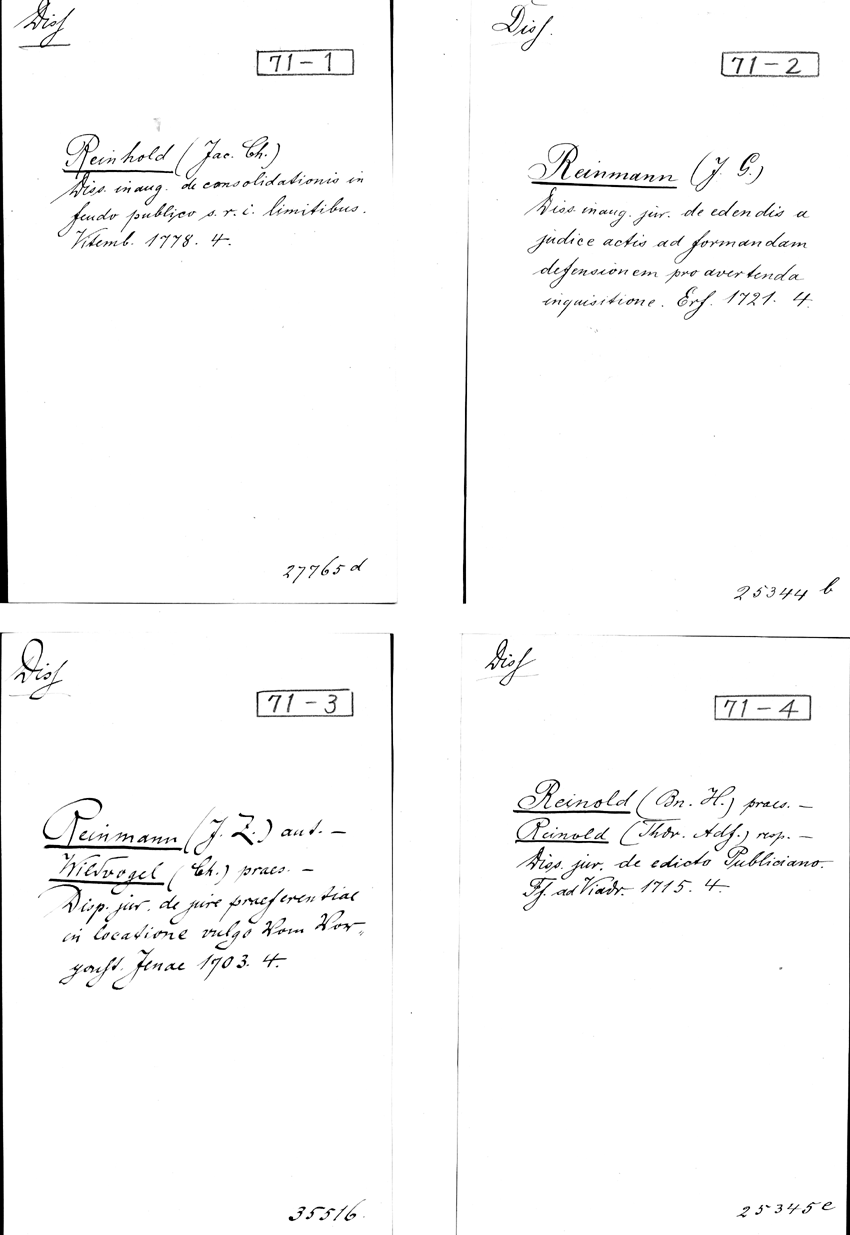 Diss
71-1
Reinhold (Jac. Ch.)
Diss. inaug. de consolidationis in
feudo publico s. r. i. limitibus.
Vitemb. 1778. 4.
27765 d
Diss.
71-2
Reinmann (J. G.)
Diss. inaug. jur. de edendis a
judice actis ad formandam
defensionem pro avertenda
inquisitione. Erf. 1721. 4.
25344 b
Diss
71-3
Reinmann (J. Z.) aut. —
Wildvogel (Ch.) praes. —
Disp. jur. de jure praeferentiae
in locatione vulgo Vom Vor-
pacht. Jenae 1703. 4.
35516.
Diss
71-4
Reinold (Bn. H.) praes. —
Reinold (Thdr. Adf.) resp. —
Diss. jur. de edicto Publiciano.
Ff. ad Viadr. 1715. 4.
25345 e